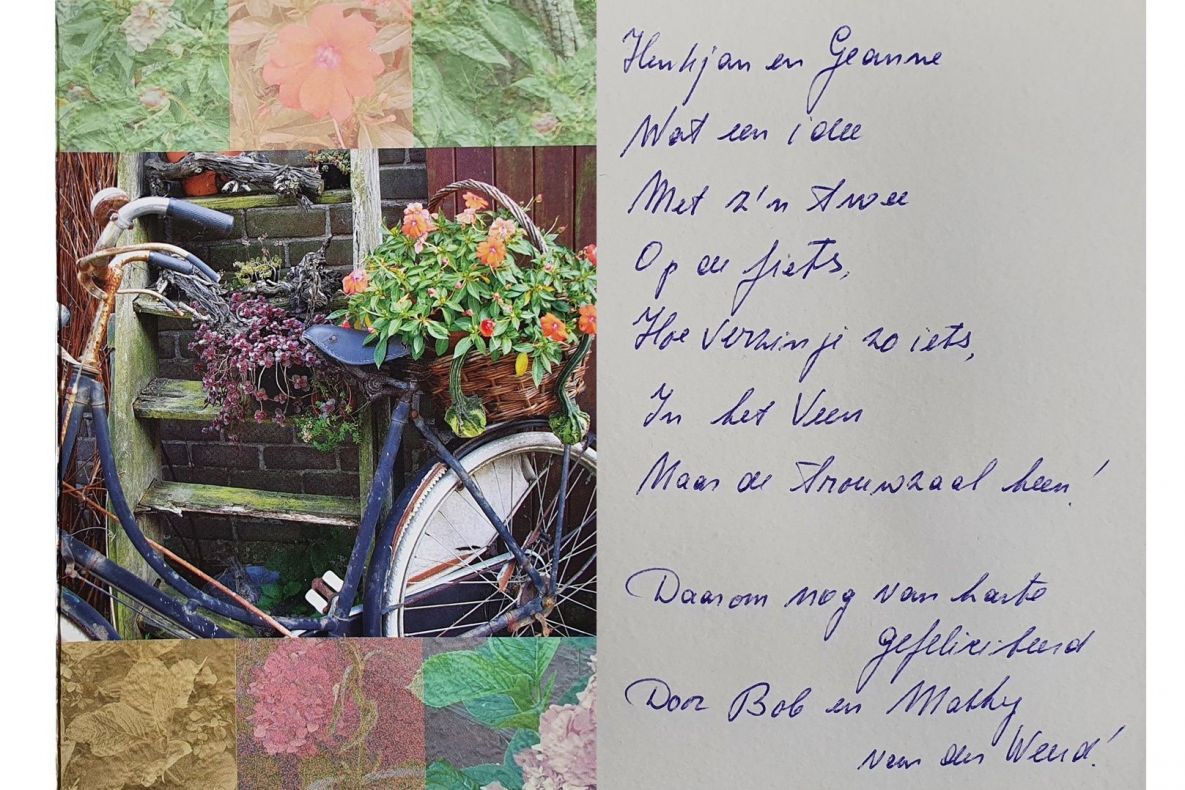 Henkjan en Geanne
Wat een idee
Met z'n twee
Op de fiets,
Hoe verzin je zo iets,
In het Veen
Naar de trouwzaal heen!
Daarom nog van harte
gefeliciteerd
Door Bob en Mathy
van der Weerd!